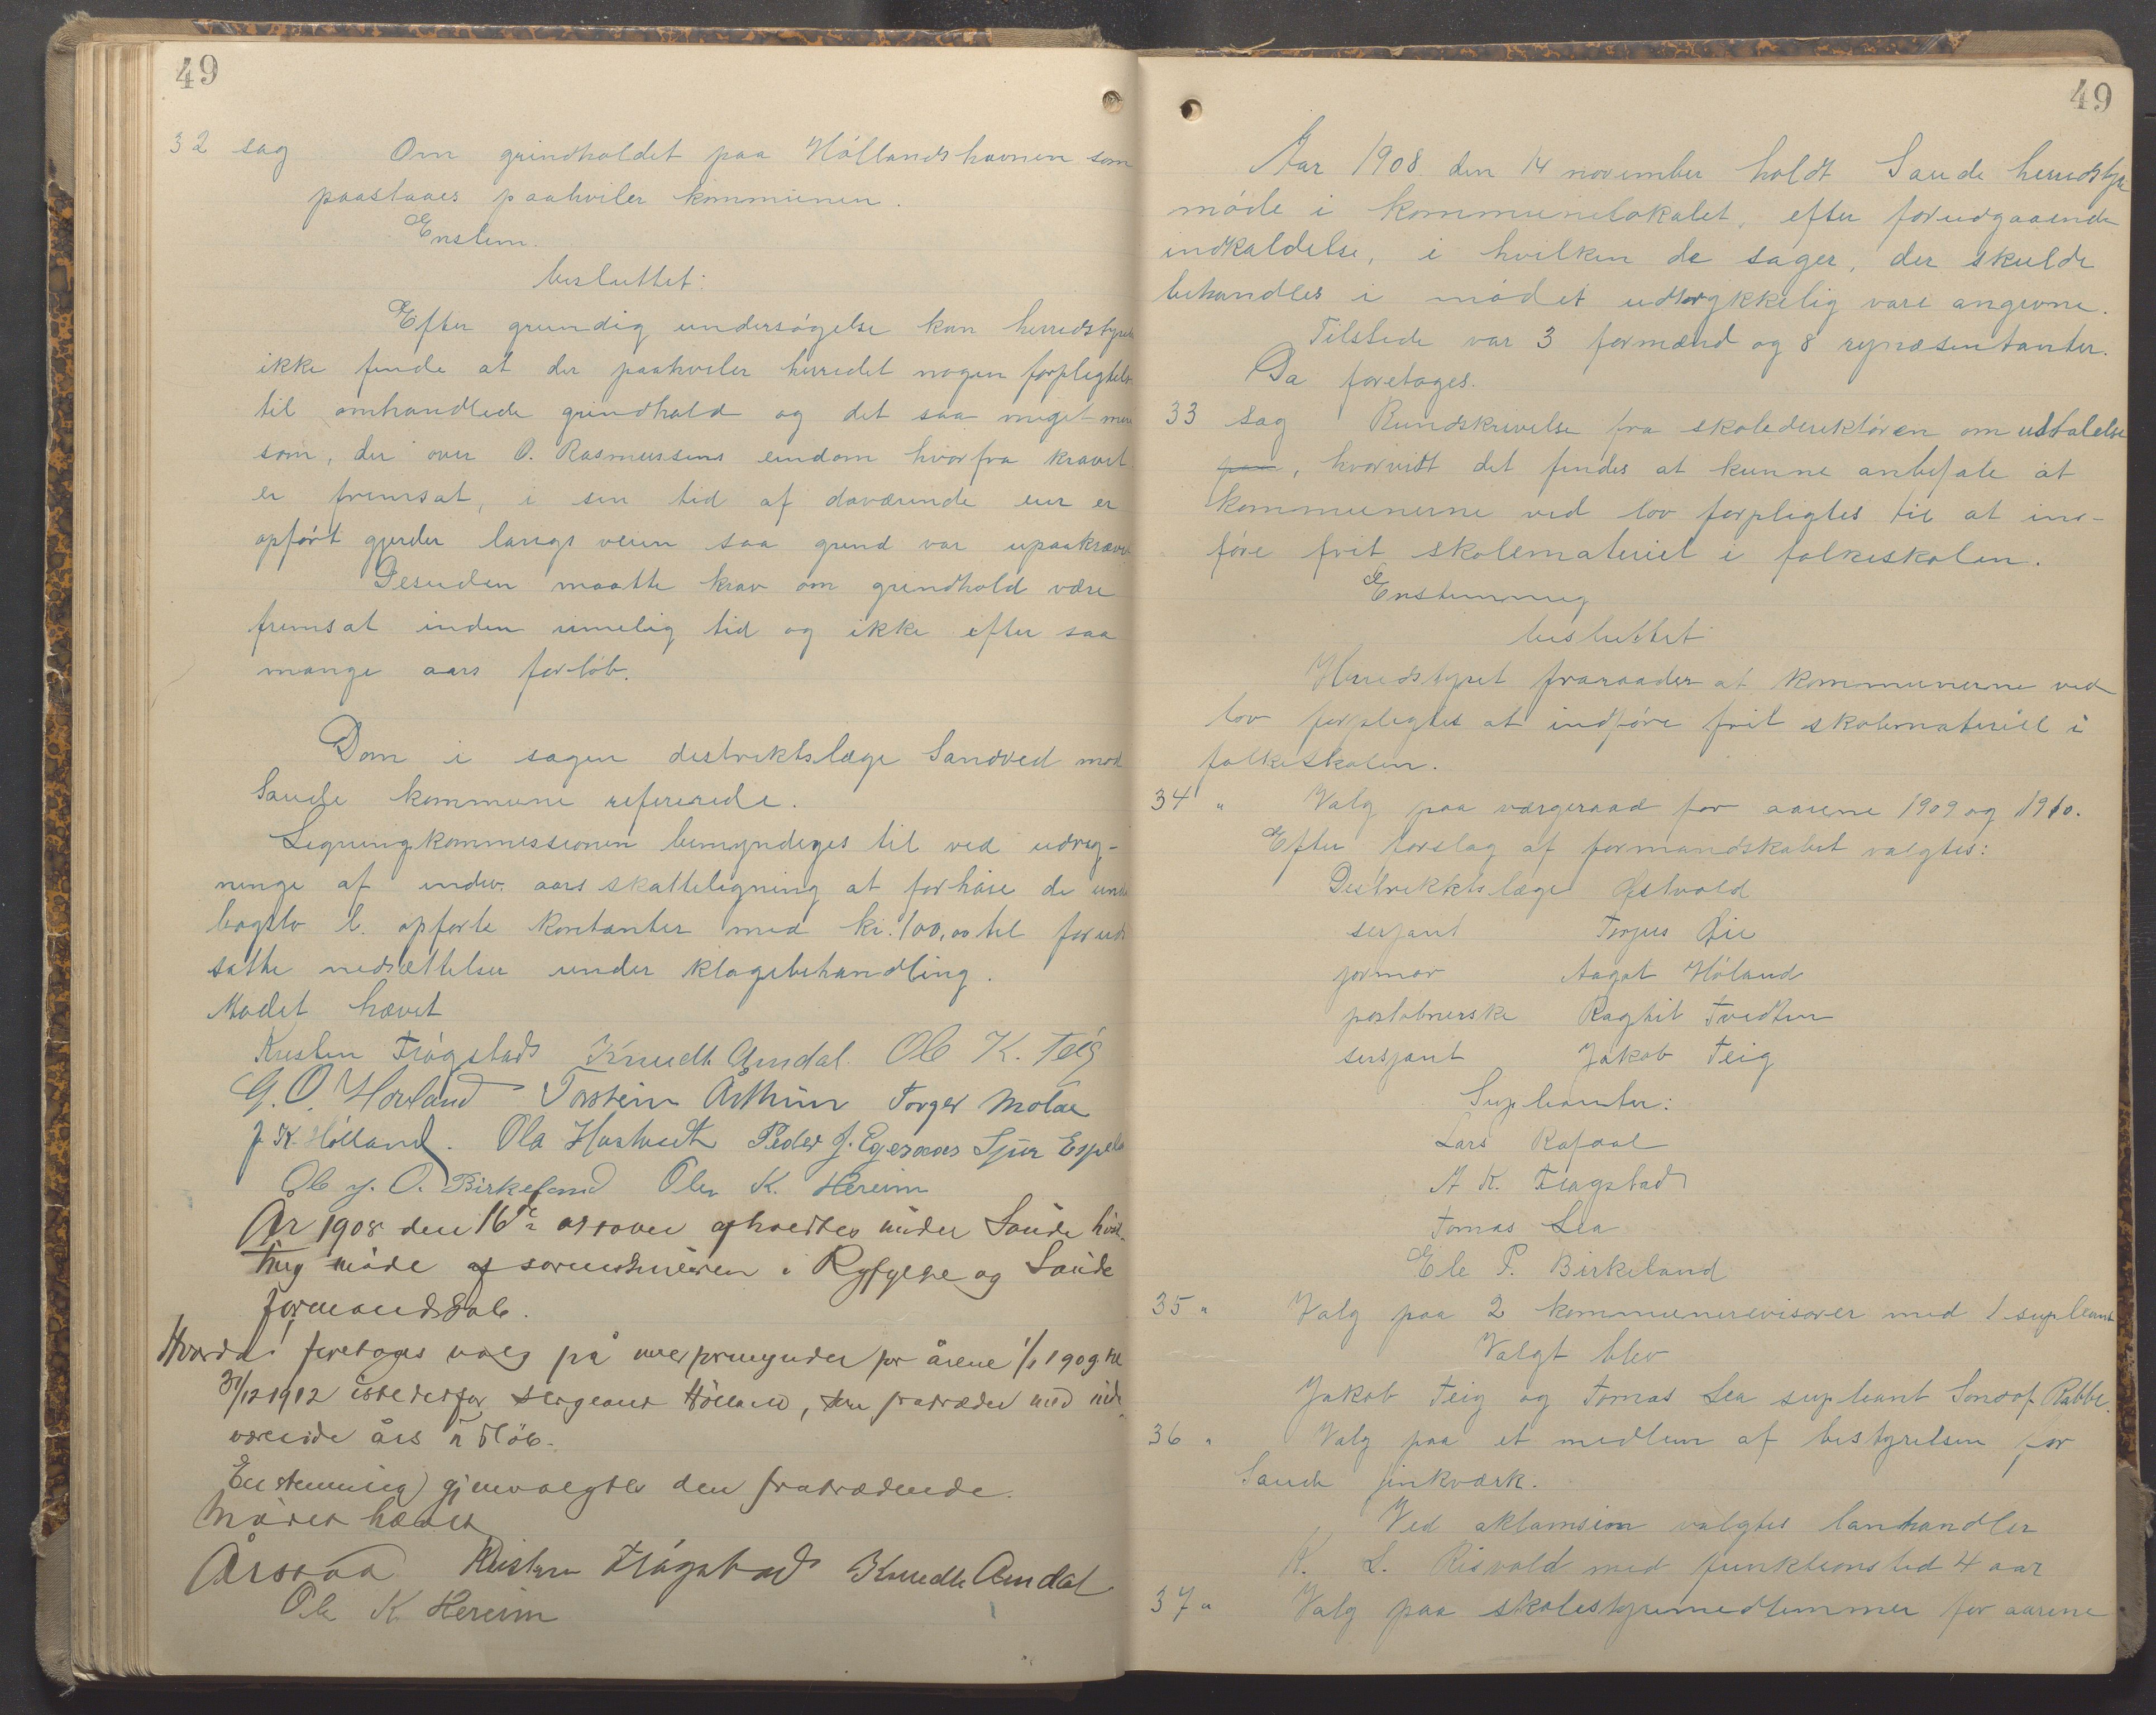 49
32 sag Om grindholdet paa Høllandshavnen som
paastaaes paahviler kommunen.
Enstem.
besluttet:
Efter grundig undersøgelse kan herredstyret
ikke finde at der paahviler herredet nogen forpligtelse
til omhandlede grindhold og det saa meget mere
som, der over O. Rasmussens eiendom hvorfra kravet
er fremsat, i sin tid af daværende eier er
opført gjerder langs veien saa grind var upaakrævet
Desuden maatte krav om grindhold være
fremsat inden rimelig tid og ikke efter saa
mange aars forløb.
Dom i sagen distriktslæge Sandved mod
Saude kommune refererede.
Ligningskommissionen bemyndiges til ved udreg-
ninge af indev. aars skatteligning at forhøie de under
bogstv l. opførte kontanter med kr. 100,00 til forud
satte nedsættelser under klagebehandling.
Mødet hævet
Kristen Fløgstad Knudt Amdal. Ole K. Teig
G. O. Hovland Torstein Årthun Torger Molae
J. K. Hølland. Ola Hustvedt Peder J. Egernæs Sjur Espeland
Ole J. O. Birkeland Ole K. Hereim
År 1908 den 16de oktober afholdtes under Saude høst-
ting møde af sorenskriveren i Ryfylke og Saude
formandskab.
Hvorda! foretoges valg på overformynder for årene 1/1 1909 til
31/12 1912 istedetfor sergeant Hølland, der fratræder med nu-
værende års udløb.
Enstemmig gjenvalgtes den fratrædende.
Mødet hævet
Kristen Fløgstad Knudt Amdal
Ole K. Hereim
49
Aar 1908 den 14 november holdt Saude herredstyre
møde i kommunelokalet, efter forudgaaende
indkaldelse, i hvilken de sager, der skulde
behandles i mødet udtrykkelig vare angivne.
Tilstede var 3 formænd og 8 repræsentanter.
Da foretoges.
33 sag Rundskrivelse fra skoledirektøren om udtalelse
paa, hvorvidt det findes at kunne anbefale at
kommunerne ved lov forpligtes til at ind-
føre frit skolemateriel i folkeskolen.
Enstemmig
besluttet
Herredstyret fraraader at kommunerne ved
lov forpligtes at indføre frit skolemateriell i
folkeskolen.
34 " Valg paa værgeraad for aarene 1909 og 1910.
Efter forslag af formandskabet valgtes:
Distrikktslæge Østvold
serjant Torjus Øie
jormor Aagot Høland
postobnerske Raghil Tvedten
sersjant Jakob Teig
Supleanter:
Lars Rafoal
A K. Fløgstad
Tomas Lea
Ele P. Birkeland
35 " Valg paa 2 kommunerevisorer med 1 supleant
Valgt blev
Jakob Teig og Tomas Lea supleant Sondof Rabbe.
36 " Valg paa et medlem af bestyrelsen for
Saude sinkværk.
Ved aklamsion valgtes lanhandler
K. L. Risvold med funktionstid 4 aar
37 " Valg paa skolestyremedlemmer for aarene